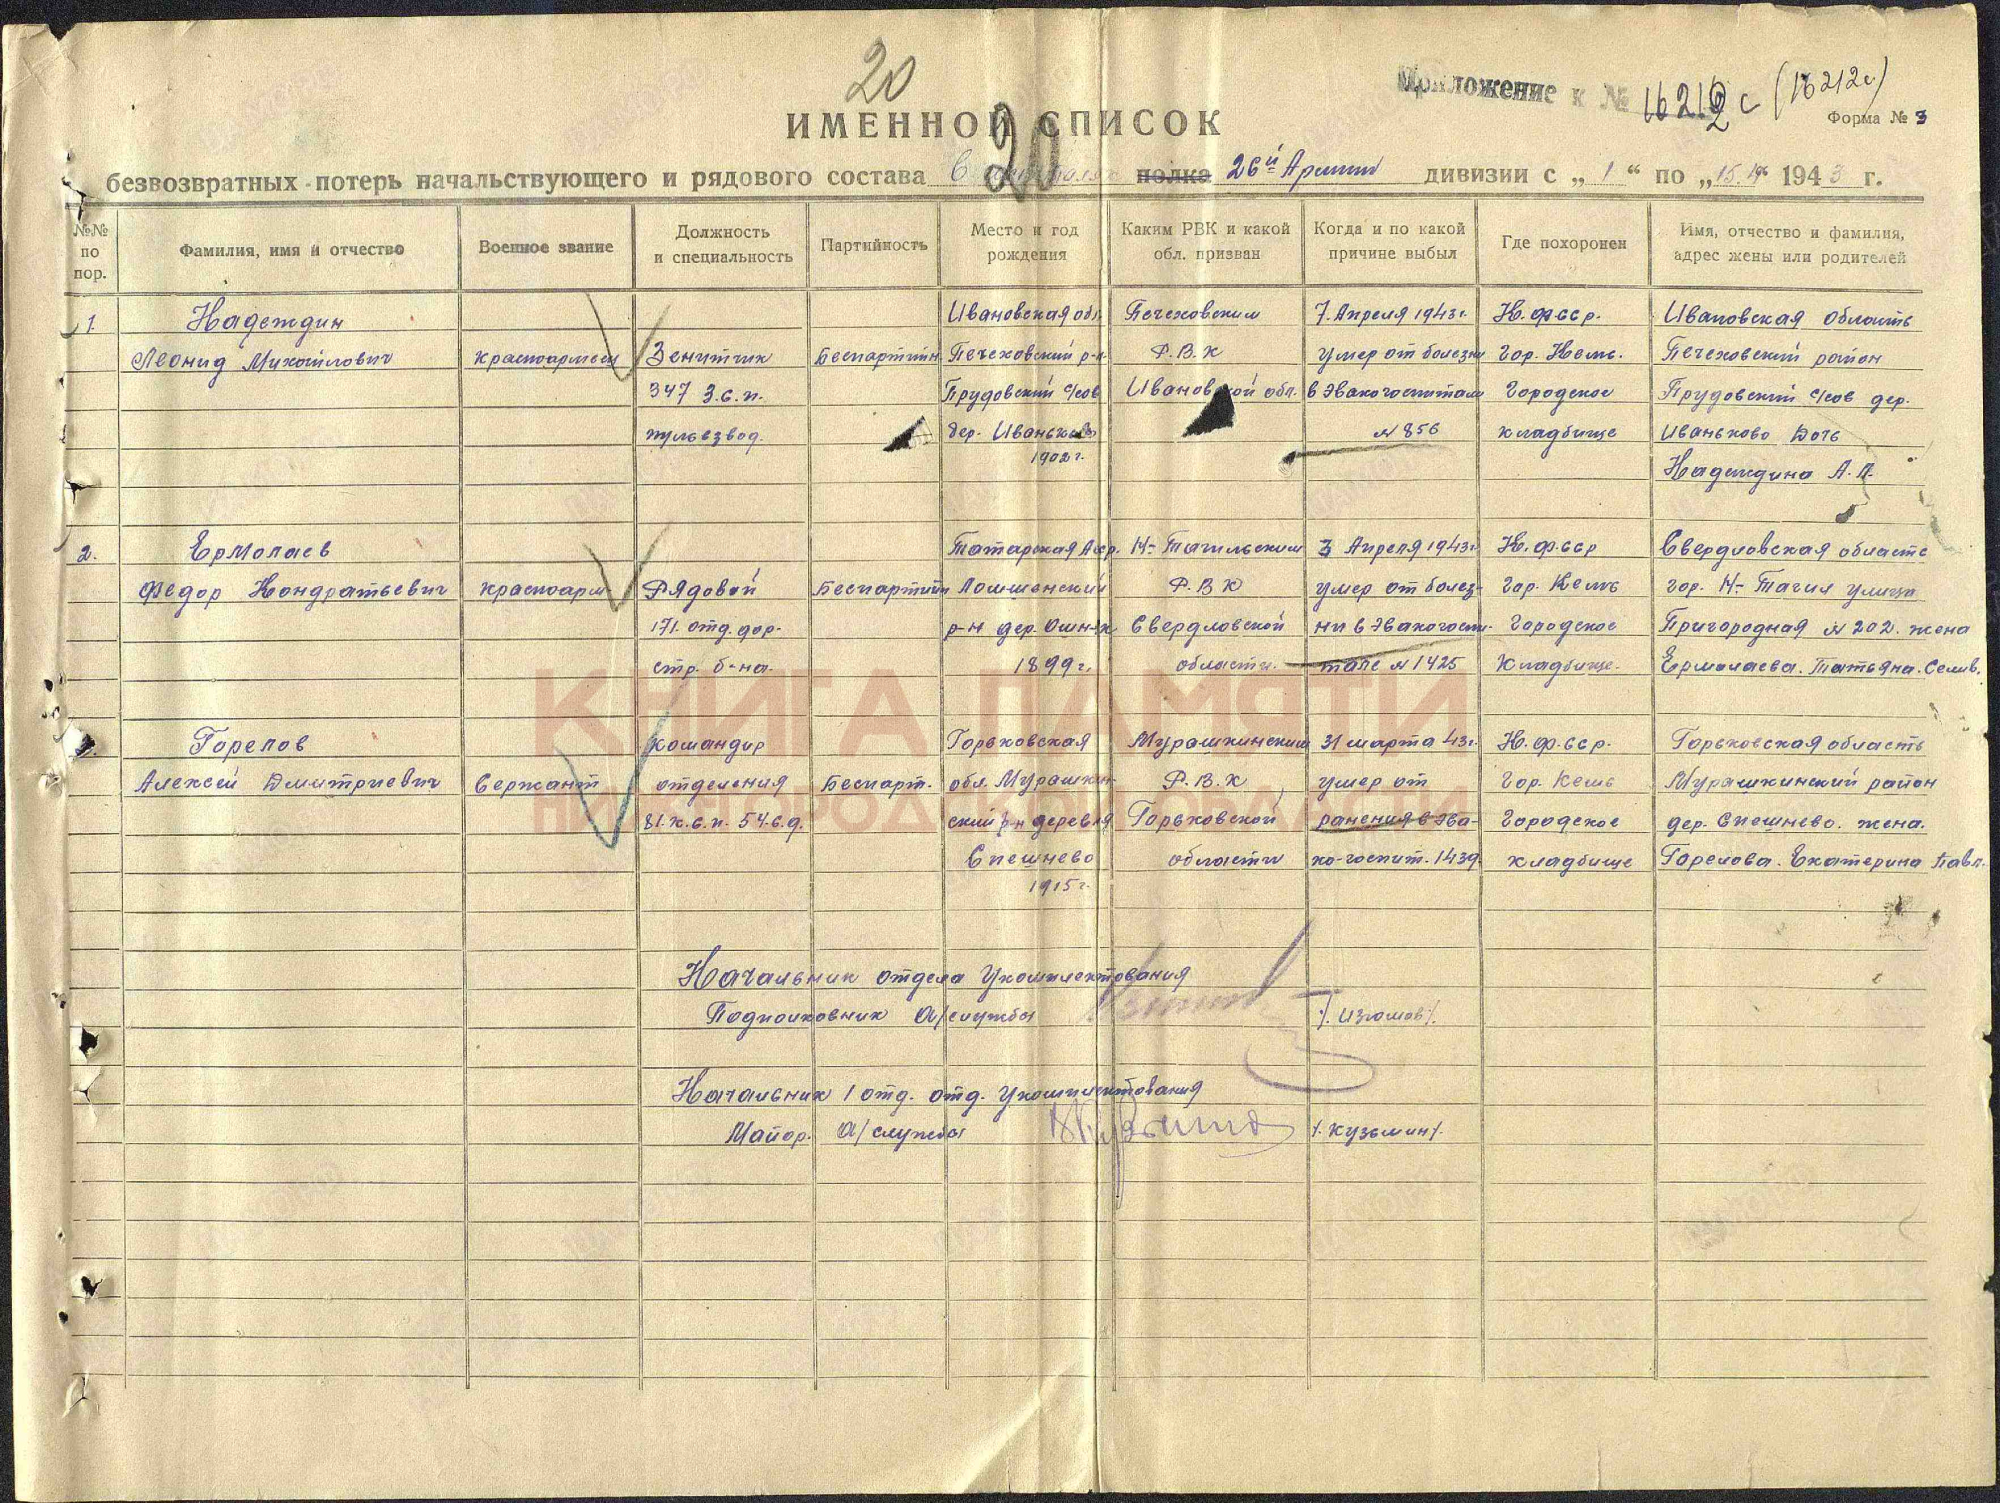 20
Приложение к № 16212с (16212с)
Форма № 3
ИМЕННОЙ СПИСОК
20
безвозвратных потерь начальствующего и рядового состава в полка 26й Армии дивизии с „ 1 “ по „ 15. 1943 г.
№№ по пор.
Фамилия, имя и отчество
Военное звание
Должность и специальность
Партийность
Место и год рождения
Каким РВК и какой обл. призван
Когда и по какой причине выбыл
Где похоронен
Имя, отчество и фамилия, адрес жены или родителей
1. Надеждин Ивановская обл. Пестяковским 7. Апреля 1943г. К.Ф.ССР. Ивановская область
Леонид Михайлович красноармеец Зенитчик Беспартийн Р.В.К умер от болезни Гор. Кемь. район
347 З.С.П. Прудовский с/сов Ивановской обл. в Эвакогоспитале Городское Прудовский с/сов дер.
пульвзвод. дер. Иваньково № 856 кладбище Иваньково Дочь
1902г. Надеждина А.Л.
2. Ермолаев Татарская Асср. Н-Тагильским 3 Апреля 1943г К.Ф.ССР Свердловская область
Федор Кондратьевич красноарм Рядовой Беспартийн Р.В.К умер от болез- Гор. Кемь гор. Н-Тагил улица
171. отд. дор. р-н дер. Свердловской ни в Эвакогоспи- Городское Пригородная № 202. жена
стр. б-на. 1899г. области. тале № 1425 Кладбище. Ермолаева. Татьяна. Селив.
Горелов командир Горьковская Мурашкинским 31 марта 43г. К.Ф.ССР. Горьковская область
Алексей Дмитриевич Сержант отделения Беспарт. обл. Мурашкин- Р.В.К умер от Гор. Кемь Мурашкинский район
81. к.с.п. 54.с.д. ский р-н деревня Горьковской ранения в Эва- Городское дер. Спешнево. жена.
Спешнево области ко-госпит. 1439 кладбище Горелова. Екатерина Павл.
1915г.
КНИГА ПАМЯТИ
НИЖЕГОРОДСКОЙ ОБЛАСТИ
Начальник отдела Укомплектования
Подполковник А/службы /. Изюмов/.
Начальник 1 отд. отд. Укомплектования
Майор. А/службы /. Кузьмин/.